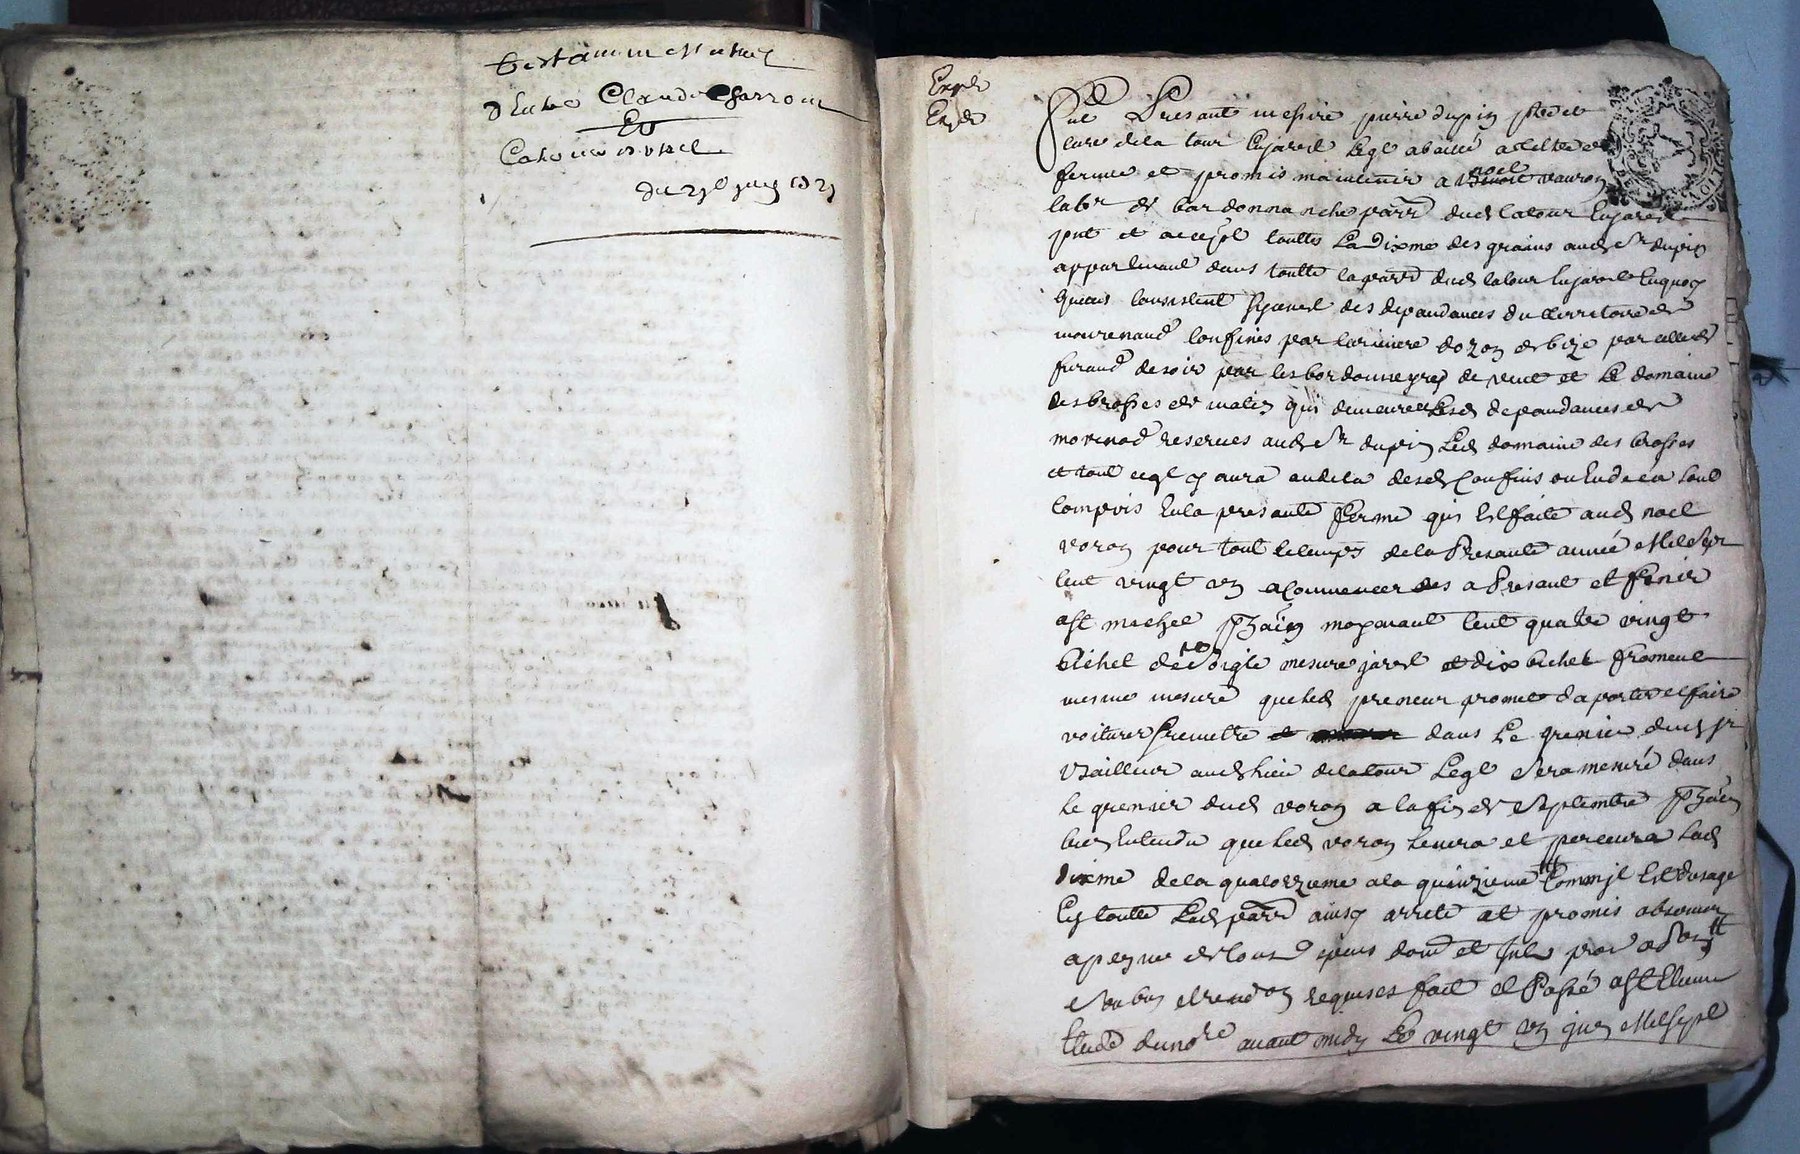 Testament mutuel
d'Entre Claude Charroin
Et
Catherine
du 21e juin 1721
Expé
Expé
Fut Presant messire pierre dupin ptre et
cure de la tour Enjarest leql a baillé a tiltre de
ferme et promis maintenir a noel vauron
labr de bardonnanche parr dud latour Enjarest
pnt et accept toutte La Dixme des grains aud sr dupin
appartenant dans toutte la parr dud latour Enjarest Enquoy
quelle consistent des depandances du territoire de
mourenand confines par lariviere dozon de bize par celle de
furand de soir par les bordonneyres de vent et Le domaine
des brosses de matin qui demeure depandances de
morinod reserves aud sr dupin Led domaine des brosses
et tout ceql y aura audela desd Confins ou Endeca sont
compris Enla presante ferme qui Est faitte aud noel
voron pour tout letemps dela Presante année Mil sept
cent vingt un a Commencer des a Presant et finir
a st michel pchain moyenant Cent quatre vingt
bichet de soigle mesure jarest et dix bichet fromant
mesme mesure queled preneur promet daporter et faire
voiturer remettre dans Le grenier dud sr
Bailleur aud lieu delatour Leql sera mesuré dans
le grenier dud voron a lafin de septembre pchain
bien Entendu que led voron Levera et percevra Lad
dixme dela quatorzieme ala quinzieme Comme jl Est dusage
En toutte Lad parr ainsy arreté et promis observer
a peyne de tous depens dom et Int
et renon requises fait et Passé a st Etienne
Etude dunore avant midy Le vingt un juin Mil sept